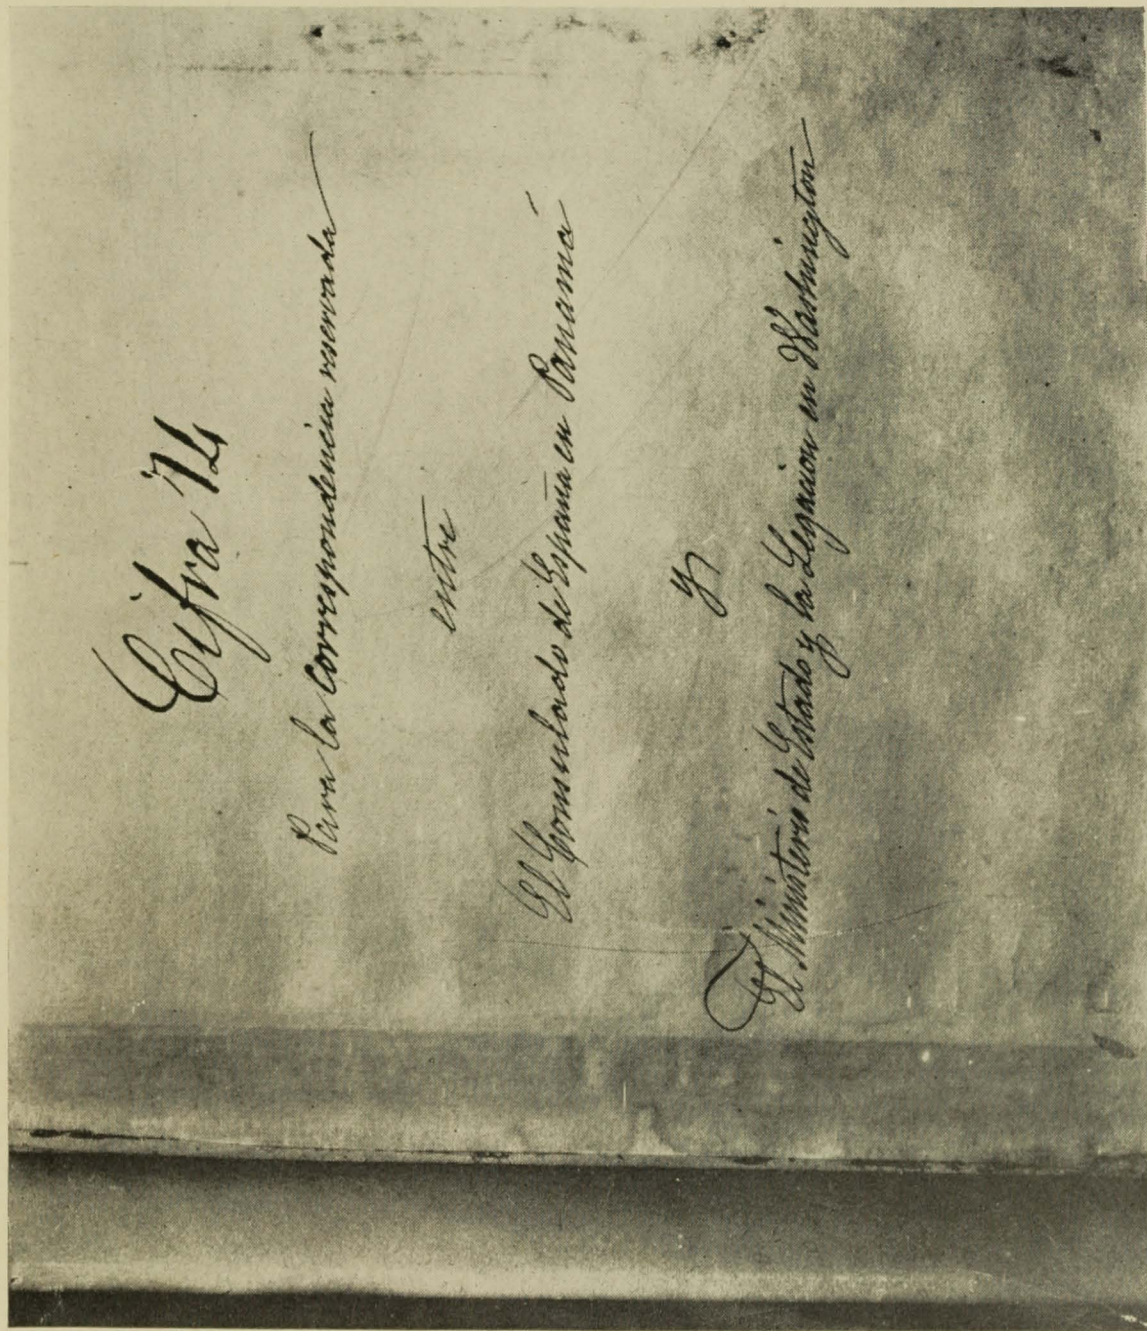 Cifra 74
Para la Correspondencia reservada
entre
El Consulado de España en Panamá
y
El Ministerio de Estado y la Legacion en Washington